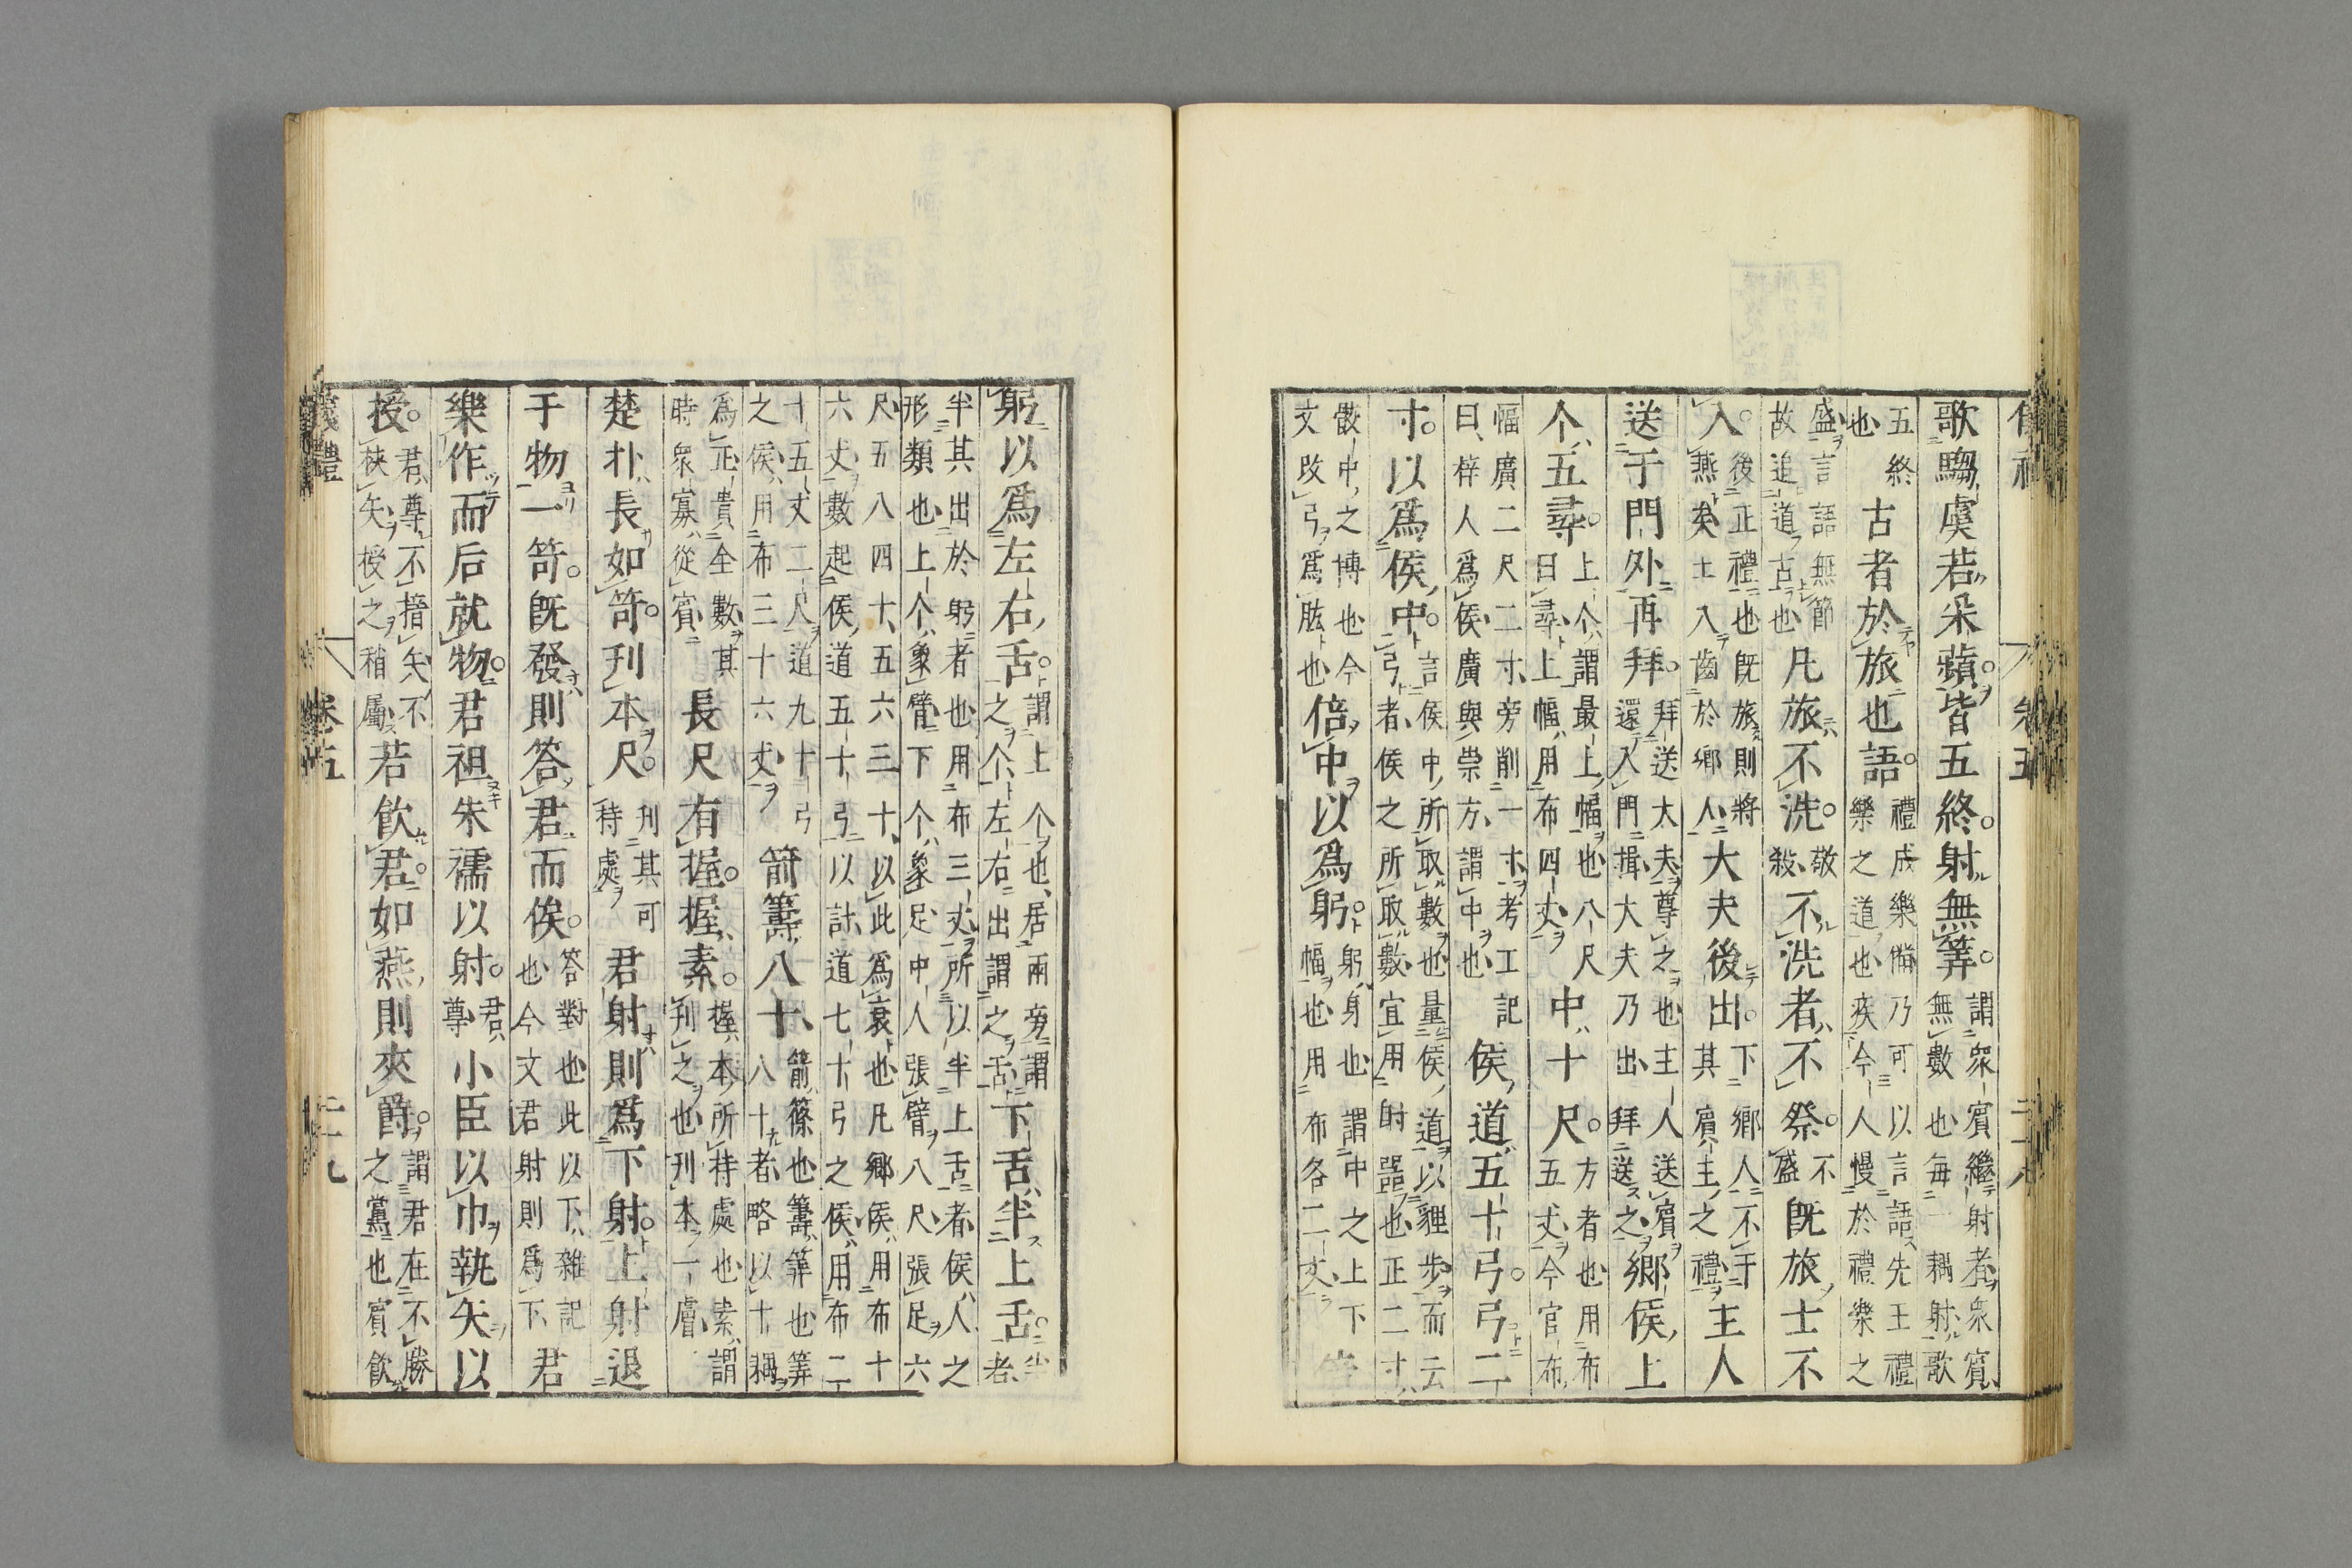 卷五
歌騶虞若采蘋皆五終射無筭謂衆賓繼射者衆賓無數也每一耦射歌
五終也古者於旅也語禮成樂備乃可以言語先王禮樂之道也疾今人慢於禮樂之
盛言語無節故追道古也凡旅不洗敬殺不洗者不祭不盛既旅士不
入後正禮也既旅則將燕矣士入齒於鄉人大夫後出下鄉人不干其賓主之禮主人
送于門外再拜拜送大夫尊之也主人送賓還入門揖大夫乃出拜送之鄉侯上
个五尋上个謂最上幅也八尺曰尋上幅用布四丈中十尺方者也用布五丈今官布
幅廣二尺二寸旁削一寸考工記曰梓人爲侯廣與崇方謂中也侯道五十弓弓二
寸以爲侯中言侯中所取數也量侯道以貍步而云弓者侯之所取數宜用射器也正二寸
骹中之博也今文改弓爲肱也倍中以爲躬躬身也謂中之上下幅也用布各二丈倍
躬以爲左右舌謂上个也居兩旁謂之个左右出謂之舌下舌半上舌半者
半其出於躬者也用布三丈所以半上舌者侯人之形類也上个象臂下个象足中人張臂八尺張足六
尺五八四十五六三十以此爲衰也凡鄉侯用布十六丈數起侯道五十弓以計道七十弓之侯用布二
十五丈二尺道九十弓之侯用布三十六丈箭籌八十箭篠也籌筭也筭八十者略以十耦
爲正貴全數其時衆寡從賓長尺有握握素握本所持處也素謂刊之也刊本一膚
楚朴長如笴刊本尺刊其可持處君射則爲下射上射退
于物一笴既發則答君而俟答對也此以下雜記也今文君射則爲下君
樂作而后就物君袒朱襦以射君尊小臣以巾執矢以
授君尊不搢矢不挾矢授之稍屬若飲君如燕則夾爵謂君在不勝之黨也賓飲
儀禮 卷五 二十九